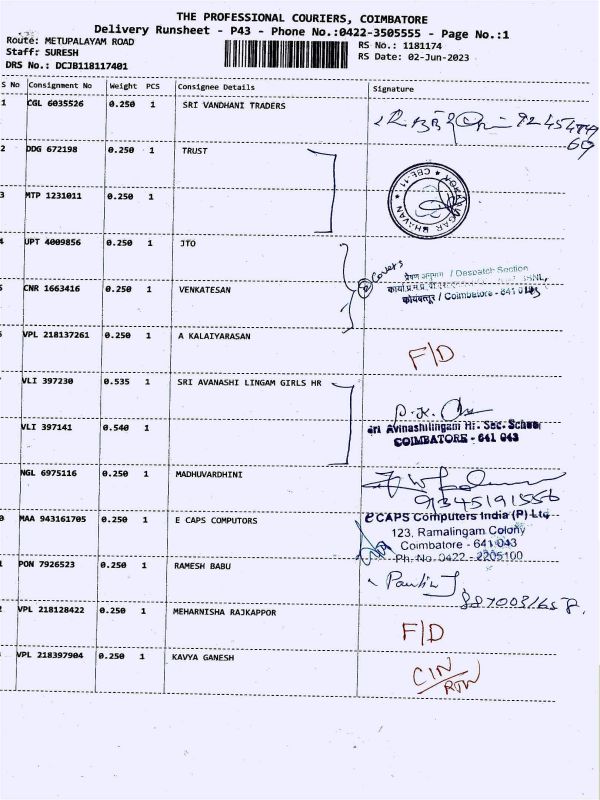 THE PROFESSIONAL COURIERS, COIMBATORE
Delivery Runsheet - P43 - Phone No.:0422-3505555 - Page No.:1
Route: METUPALAYAM ROAD
RS No.: 1181174
Staff: SURESH
RS Date: 02-Jun-2023
DRS No.: DCJB118117401
S No Consignment No Weight PCS Consignee Details Signature
1 CGL 6035526 0.250 1 SRI VANDHANI TRADERS
2 DDG 672198 0.250 1 TRUST
3 MTP 1231011 0.250 1
BHAVAN CBE-11
4 UPT 4009856 0.250 1 JTO
Covers
प्रेषण अनुभाग / Despatch Section
CNR 1663416 0.250 1 VENKATESAN
कोयंबत्तूर / Coimbatore - 641 043
VPL 218137261 0.250 1 A KALAIYARASAN
F/D
VLI 397230 0.535 1 SRI AVANASHI LINGAM GIRLS HR
VLI 397141 0.540 1
Sri Avinashilingam Hr. Sec. School
COIMBATORE - 641 043
NGL 6975116 0.250 1 MADHUVARDHINI
9345191556
MAA 943161705 0.250 1 E CAPS COMPUTORS
e CAPS Computers India (P) Ltd
123, Ramalingam Colony
Coimbatore - 641 043
Ph. No. 0422 - 2205100
PON 7926523 0.250 1 RAMESH BABU
VPL 218128422 0.250 1 MEHARNISHA RAJKAPPOR
F/D
VPL 218397904 0.250 1 KAVYA GANESH
CIN/RTN